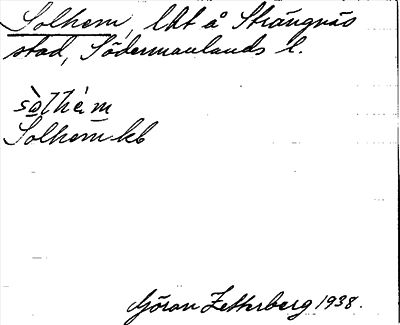 Solhem, lht å Strängnäs
stad, Södermanlands l.
sòlhém
Solhem kb
Göran Zetterberg 1938.